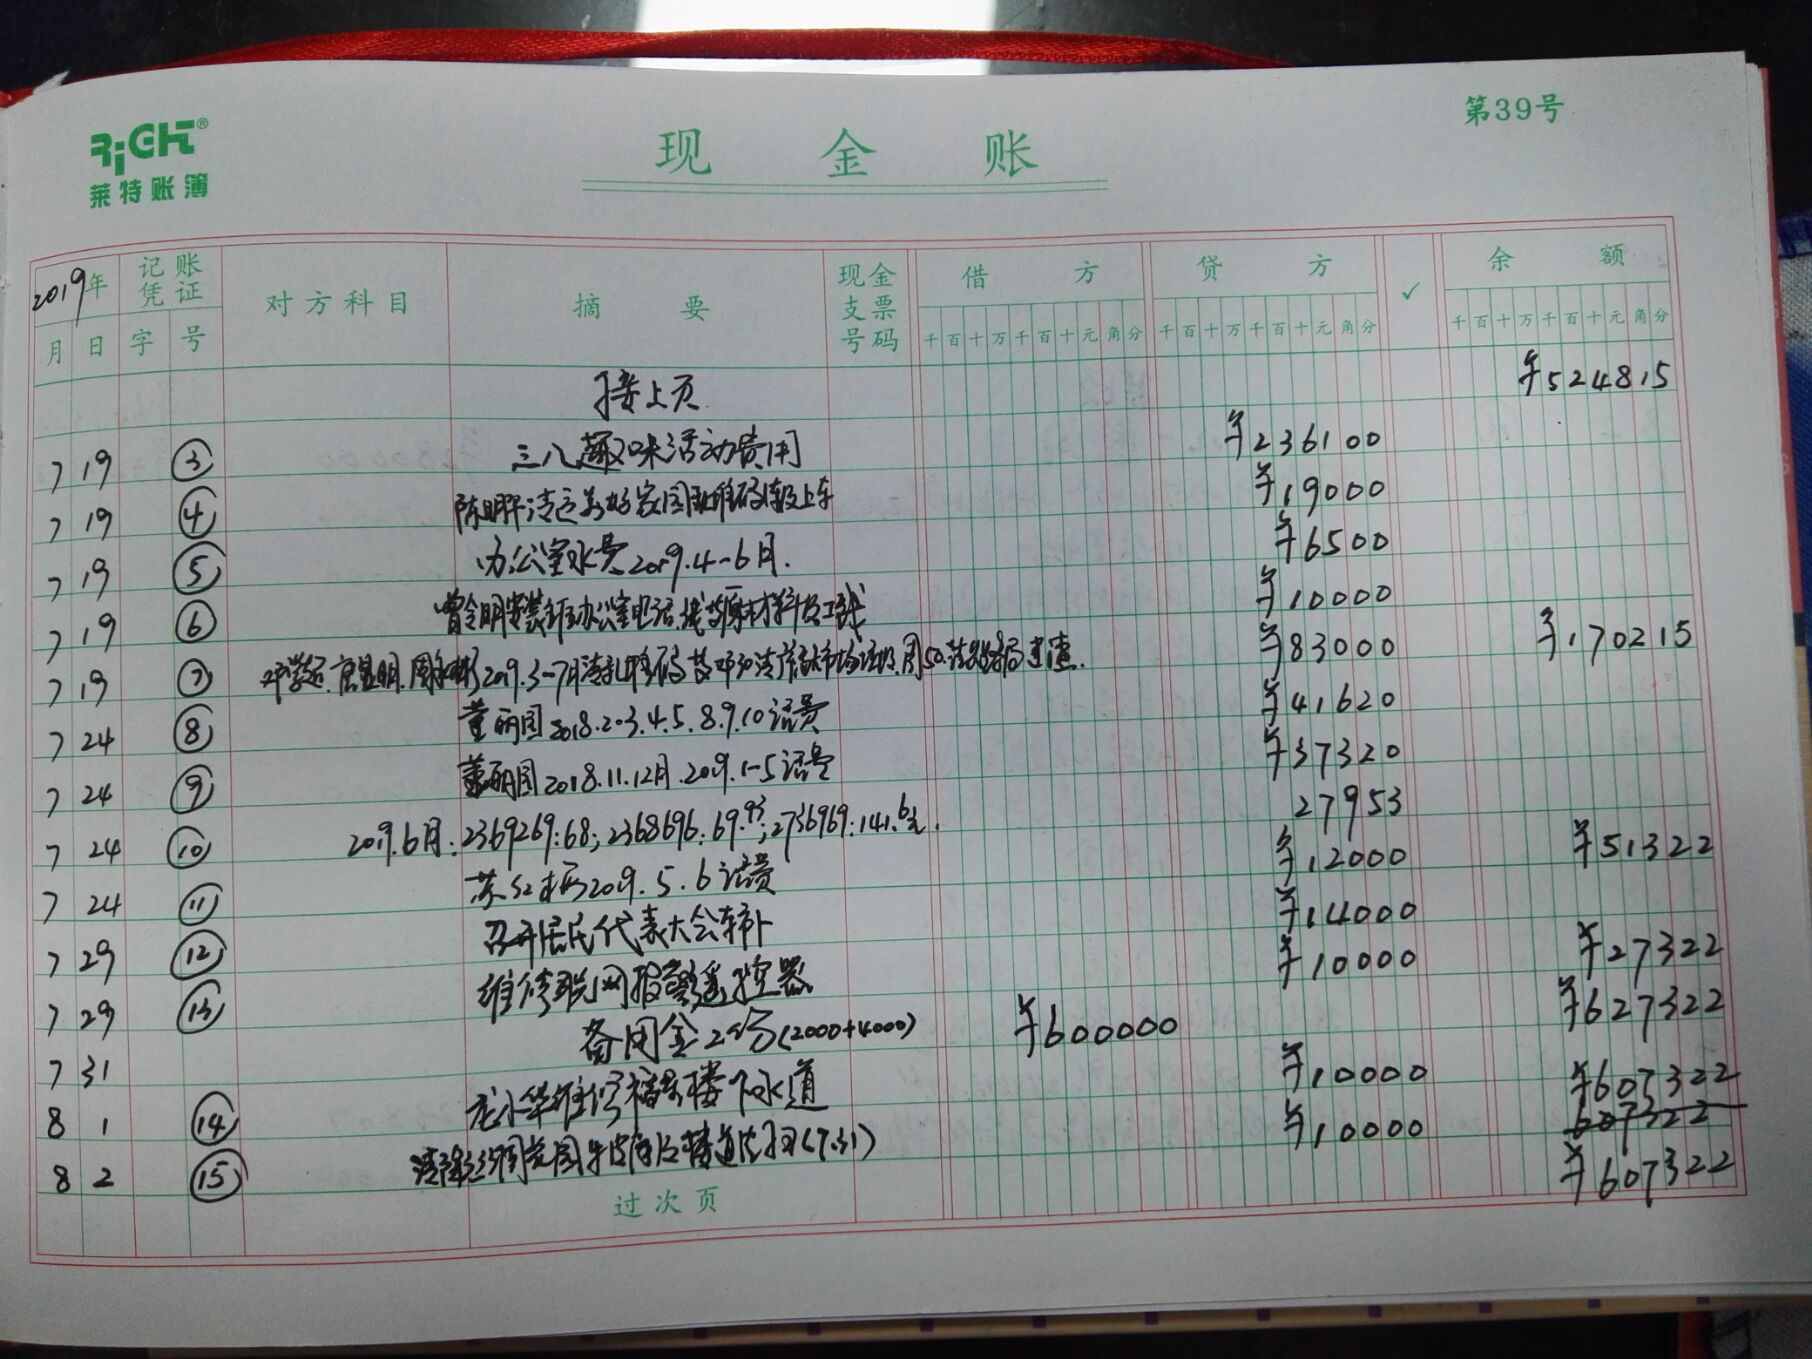 RiGHT®
莱特账簿
现金账
第39号
2019年 记账凭证 对方科目 摘要 现金支票号码 借方 贷方 ✓ 余额
月 日 字 号 千百十万千百十元角分 千百十万千百十元角分 千百十万千百十元角分
接上页 ¥524815
7 19 ③ 三八趣味活动费用 ¥236100
7 19 ④ 陈明 清运 家园 堆码 上车 ¥19000
7 19 ⑤ 办公室水费2019.4-6月. ¥6500
7 19 ⑥ 曾令明安装 办公室电话线 原材料 工钱 ¥10000
7 19 ⑦ 2019.3-7月 ¥83000 ¥170215
7 24 ⑧ 董丽图2018.2.3.4.5.8.9.10话费 ¥41620
7 24 ⑨ 董丽图2018.11.12月.2019.1-5话费 ¥37320
7 24 ⑩ 2019.6月:2369269:68;2368696:69.93;2736969:141.6元. 27953
7 24 ⑪ 苏红梅2019.5.6话费 ¥12000 ¥51322
7 29 ⑫ 召开居民代表大会 ¥14000
7 29 ⑬ 维修联网报警遥控器 ¥10000 ¥27322
7 31 备用金2份(2000+4000) ¥600000 ¥627322
8 1 ⑭ 龙小华维修福乐楼下水道 ¥10000 ¥607322
607322
8 2 ⑮ 楼道 (7.31) ¥10000 ¥607322
过次页